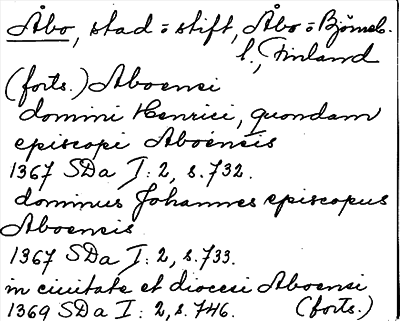 Åbo, stad = stift, Åbo = Björneb.
l., Finland
(forts.) Aboensi
domini Henrici, quondam
episcopi Aboensis
1367 SDa I: 2, s. 732.
dominus Johannes episcopus
Aboensis
1367 SDa I: 2, s. 733.
in ciuitate et diocesi Aboensi
1369 SDa I: 2, s. 746. (forts.)